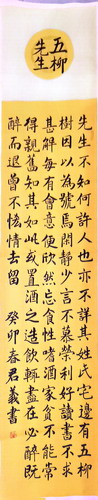 五柳
先生
先生不知何許人也亦不詳其姓氏宅邊有五柳
樹因以為號焉閑靜少言不慕榮利好讀書不求
甚解每有會意便欣然忘食性嗜酒家貧不能常
得親舊知其如此或置酒之造飲輒盡在必醉既
醉而退曾不恡情去留 癸卯春君義書